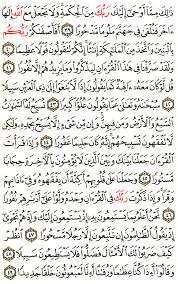 ذَٰلِكَ مِمَّا أَوْحَىٰ إِلَيْكَ رَبُّكَ مِنَ الْحِكْمَةِ وَلَا تَجْعَلْ مَعَ اللَّهِ إِلَٰهًا
آخَرَ فَتُلْقَىٰ فِي جَهَنَّمَ مَلُومًا مَّدْحُورًا ٣٩ أَفَأَصْفَاكُمْ رَبُّكُم
بِالْبَنِينَ وَاتَّخَذَ مِنَ الْمَلَائِكَةِ إِنَاثًا إِنَّكُمْ لَتَقُولُونَ قَوْلًا عَظِيمًا ٤٠
وَلَقَدْ صَرَّفْنَا فِي هَٰذَا الْقُرْآنِ لِيَذَّكَّرُوا وَمَا يَزِيدُهُمْ إِلَّا نُفُورًا ٤١
قُل لَّوْ كَانَ مَعَهُ آلِهَةٌ كَمَا يَقُولُونَ إِذًا لَّابْتَغَوْا إِلَىٰ ذِي الْعَرْشِ سَبِيلًا ٤٢
سُبْحَانَهُ وَتَعَالَىٰ عَمَّا يَقُولُونَ عُلُوًّا كَبِيرًا ٤٣ تُسَبِّحُ لَهُ السَّمَاوَاتُ
السَّبْعُ وَالْأَرْضُ وَمَن فِيهِنَّ وَإِن مِّن شَيْءٍ إِلَّا يُسَبِّحُ بِحَمْدِهِ وَلَٰكِن
لَّا تَفْقَهُونَ تَسْبِيحَهُمْ إِنَّهُ كَانَ حَلِيمًا غَفُورًا ٤٤ وَإِذَا قَرَأْتَ
الْقُرْآنَ جَعَلْنَا بَيْنَكَ وَبَيْنَ الَّذِينَ لَا يُؤْمِنُونَ بِالْآخِرَةِ حِجَابًا
مَّسْتُورًا ٤٥ وَجَعَلْنَا عَلَىٰ قُلُوبِهِمْ أَكِنَّةً أَن يَفْقَهُوهُ وَفِي آذَانِهِمْ
وَقْرًا وَإِذَا ذَكَرْتَ رَبَّكَ فِي الْقُرْآنِ وَحْدَهُ وَلَّوْا عَلَىٰ أَدْبَارِهِمْ نُفُورًا
٤٦ نَّحْنُ أَعْلَمُ بِمَا يَسْتَمِعُونَ بِهِ إِذْ يَسْتَمِعُونَ إِلَيْكَ وَإِذْ هُمْ نَجْوَىٰ
إِذْ يَقُولُ الظَّالِمُونَ إِن تَتَّبِعُونَ إِلَّا رَجُلًا مَّسْحُورًا ٤٧ انظُرْ
كَيْفَ ضَرَبُوا لَكَ الْأَمْثَالَ فَضَلُّوا فَلَا يَسْتَطِيعُونَ سَبِيلًا ٤٨
وَقَالُوا أَإِذَا كُنَّا عِظَامًا وَرُفَاتًا أَإِنَّا لَمَبْعُوثُونَ خَلْقًا جَدِيدًا ٤٩